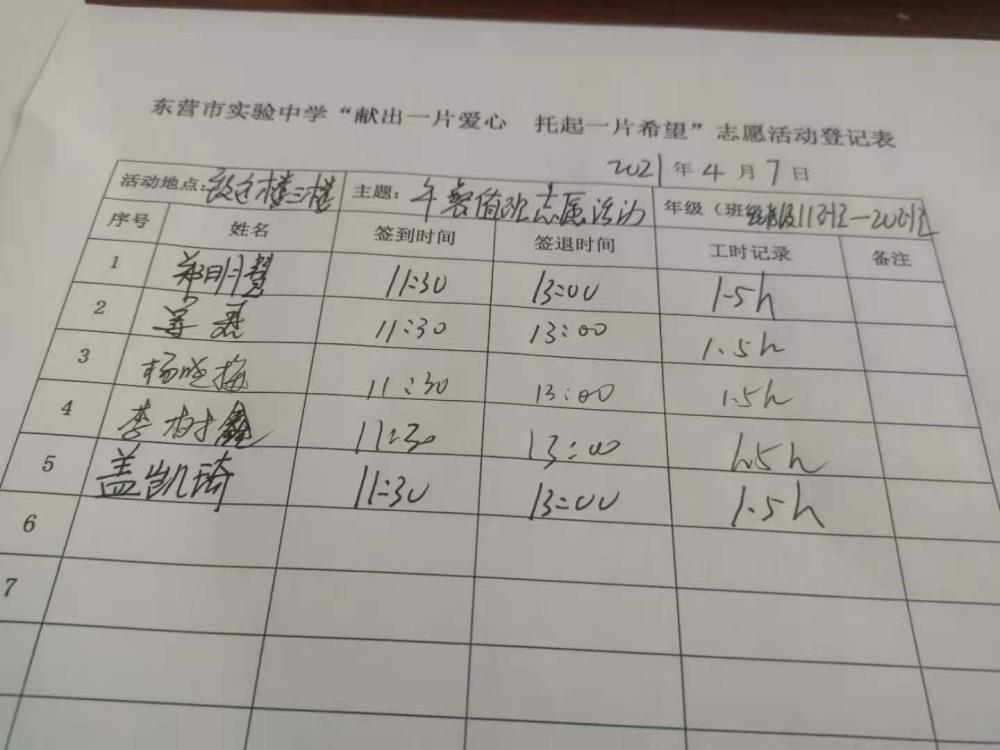 东营市实验中学“献出一片爱心 托起一片希望”志愿活动登记表
2021年4月7日
活动地点: 楼三楼 主题: 午餐值班志愿活动 年级(班级 11班—20班
序号 姓名 签到时间 签退时间 工时记录 备注
1 郑明慧 11:30 13:00 1.5h
2 11:30 13:00 1.5h
3 杨晓梅 11:30 13:00 1.5h
4 李树鑫 11:30 13:00 1.5h
5 盖凯琦 11:30 13:00 1.5h
6
7